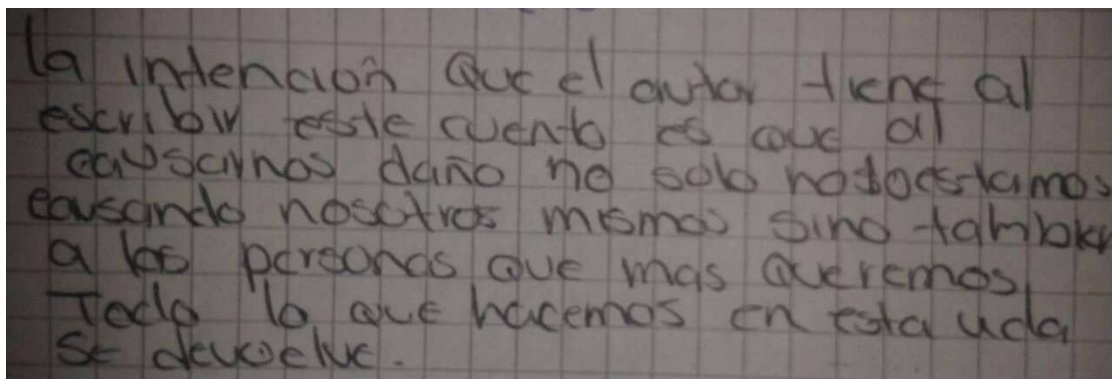 la intención que el autor tiene al
escribir este cuento es que al
causarnos daño no solo nosdoestamos
causando nosotros mismos sino tambien
a las personas que mas queremos,
Todo lo que hacemos en esta vida
se devuelve.